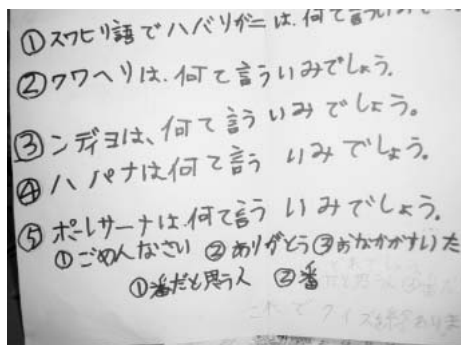 ①スワヒリ語でハバリガニは、何て言ういみで
②クワヘリは、何て言ういみでしょう。
③ンディヨは、何て言ういみでしょう。
④ハパナは何て言う いみでしょう。
⑤ポーレサーナは、何て言う いみでしょう。
①ごめんなさい ②ありがとう ③おなかがすいた
①番だと思う人 ②番
これで クイズを終わりま